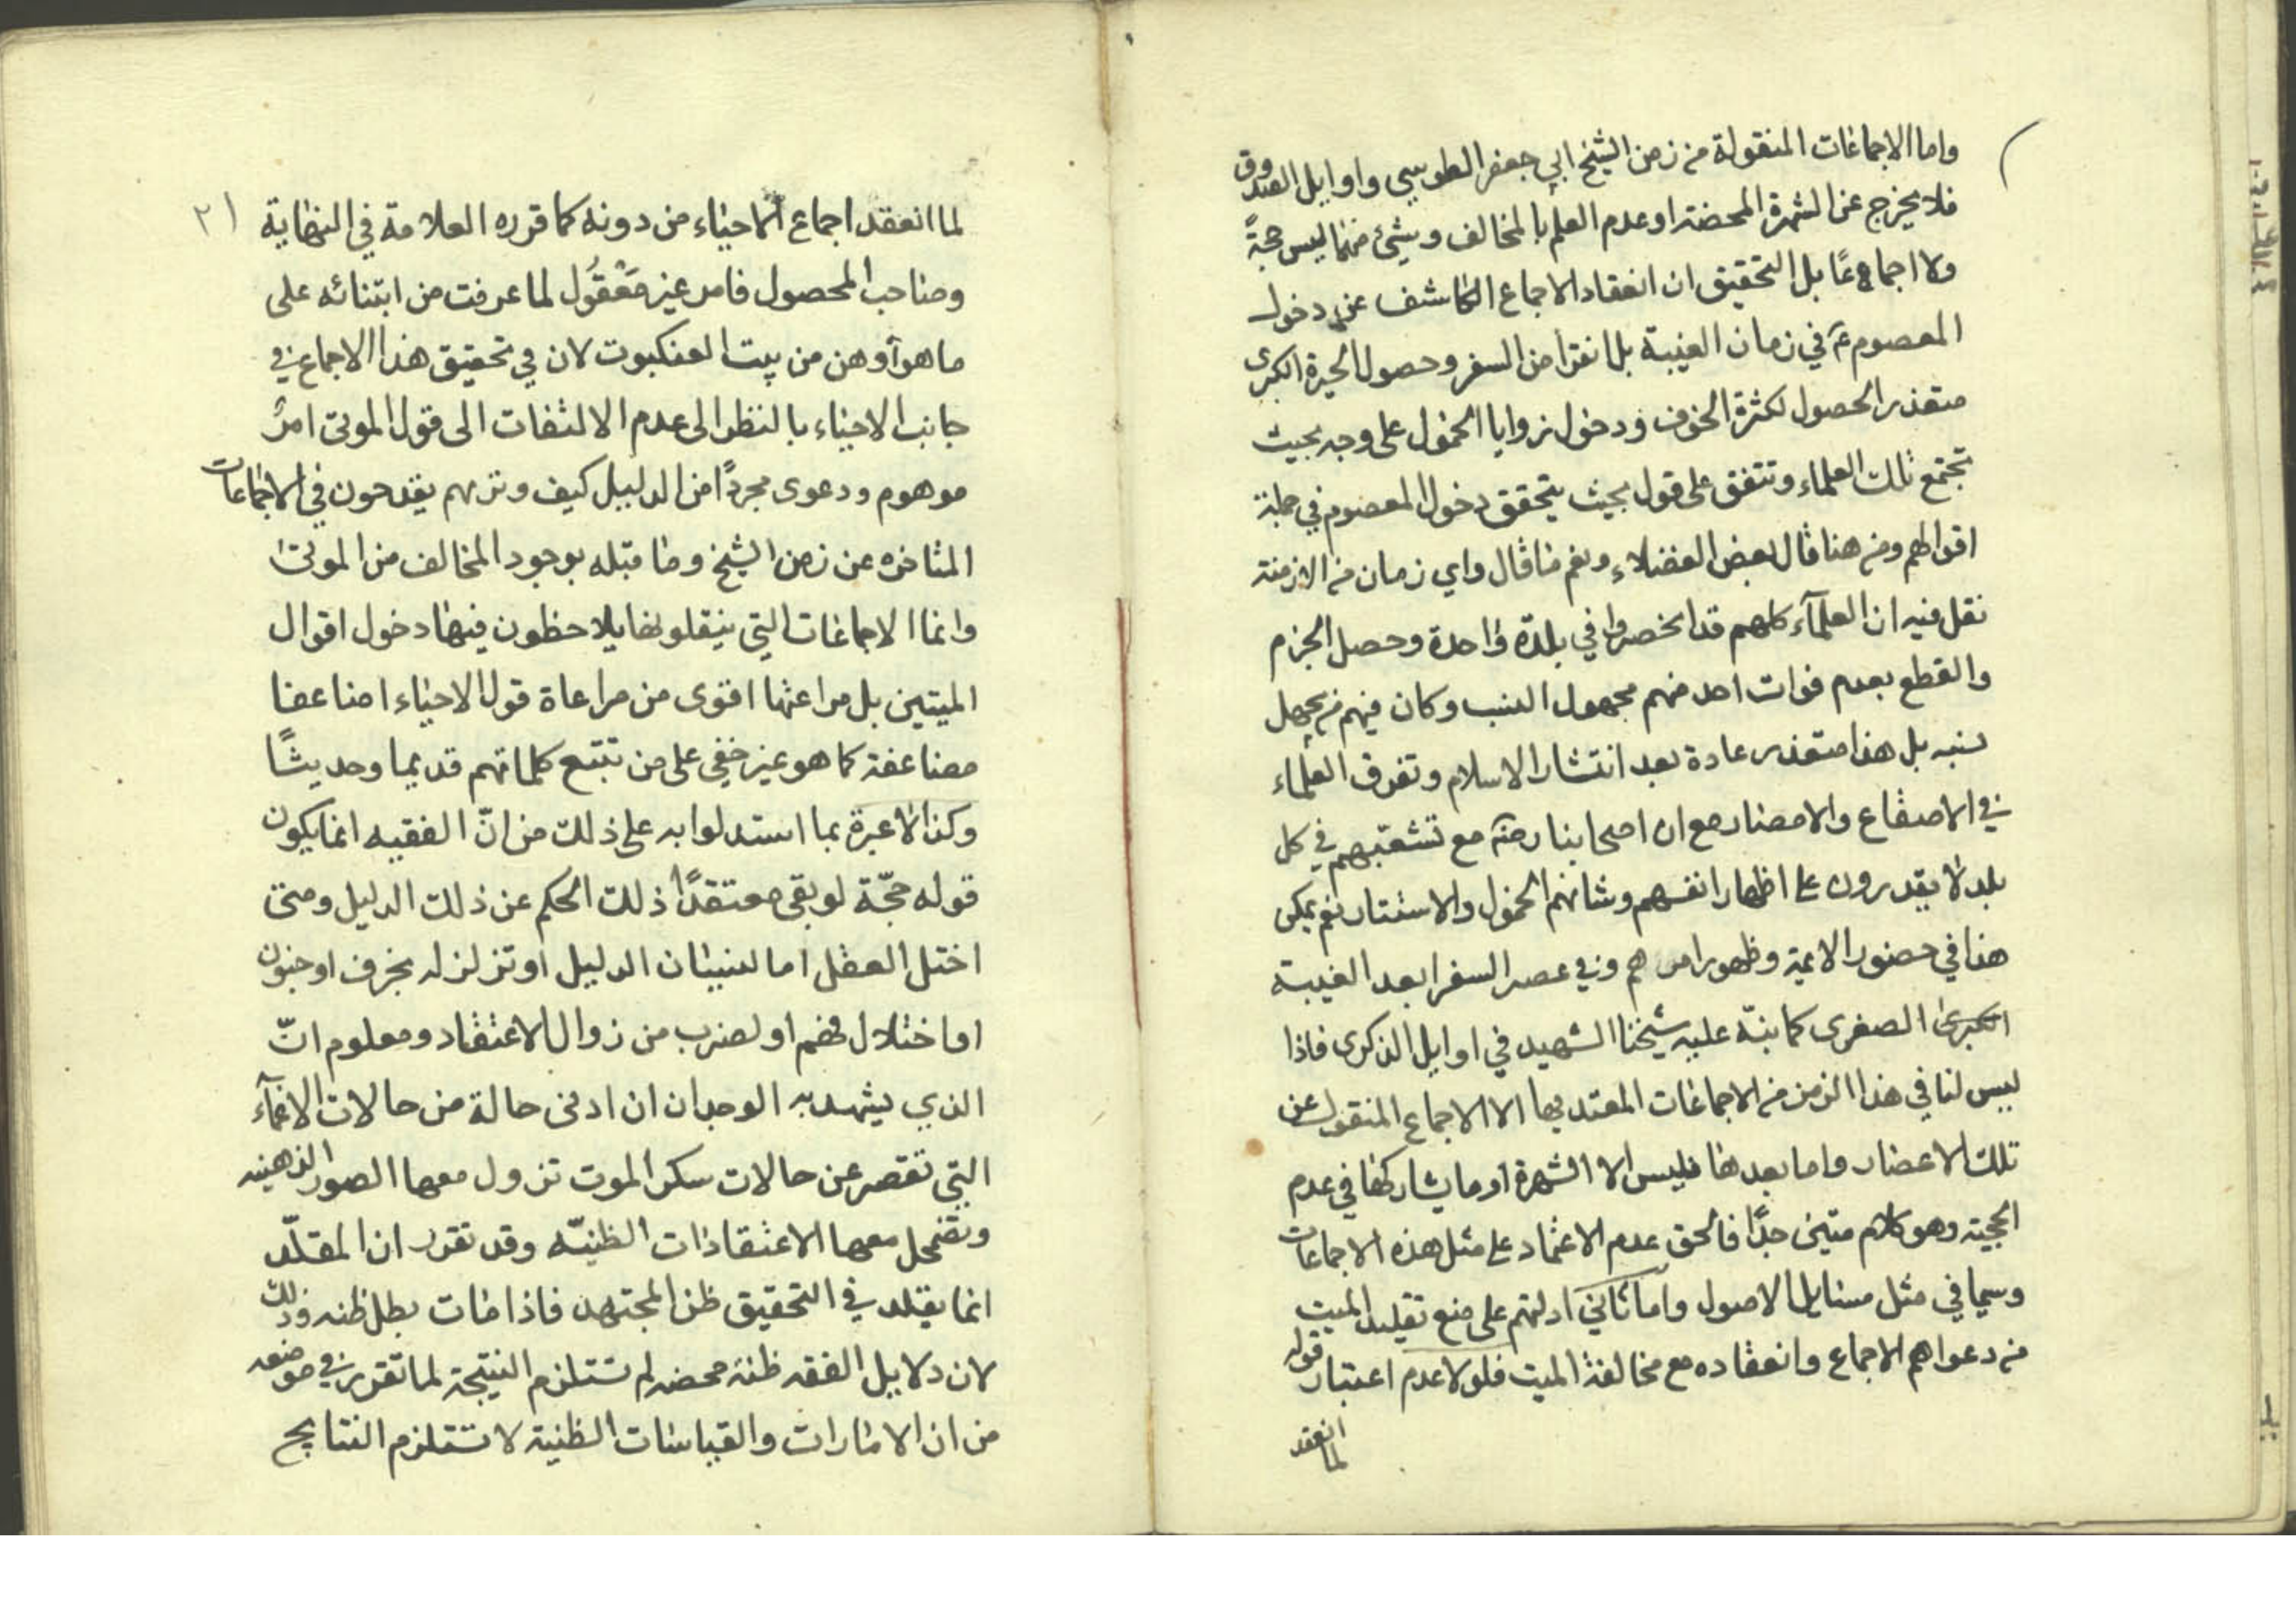 واما الاجماعات المنقولة من زمن الشيخ ابي جعفر الطوسي واوايل الصدوق
فلا يخرج عن الشهرة المحضة او عدم العلم بالمخالف وشئ منهما ليس حجةً
ولا اجماعًا بل التحقيق ان انعقاد الاجماع الكاشف عن دخول
المعصوم ع في زمان الغيبة بل انقراض السفر وحصول الحيرة الكبرى
متعذر الحصول لكثرة الخوف ودخول زوايا الخمول على وجه بحيث
تجتمع تلك العلماء وتتفق على قول بحيث يتحقق دخول المعصوم في جملة
اقوالهم ومن هنا قال بعض الفضلاء ونعم ما قال واي زمان من الازمنة
نقل فيه ان العلمآء كلهم قد انحصروا في بلدة واحدة وحصل الجزم
والقطع بعدم فوات احد منهم مجهول النسب وكان فيهم من يجهل
نسبه بل هذا متعذر عادة بعد انتشار الاسلام وتفرق العلماء
في الاصقاع والامصار مع ان اصحابنا رضه مع تشعبهم في كل
بلد لا يقدرون على اظهار انفسهم وشانهم الخمول والاستتار نعم يمكن
هذا في حضور الائمة وظهور امرهم وفي عصر السفرا بعد الغيبة
الكبرى الصغرى كما نبّه عليه شيخنا الشهيد في اوايل الذكرى فاذا
ليس لنا في هذا الزمن من الاجماعات المعتد بها الا الاجماع المنقول عن
تلك الاعصار واما بعدها فليس الا الشهرة او ما يشاركها في عدم
الحجية وهو كلام متين جدًا فالحق عدم الاعتماد على مثل هذه الاجماعات
وسيما في مثل مسايل الاصول واما ثاني ادلتهم على منع تقليد الميت
من دعواهم الاجماع وانعقاده مع مخالفة الميت فلولا عدم اعتبار قوله
لما انعقد
٢١
لما انعقد اجماع الاحياء من دونه كما قرره العلامة في النهاية
وصاحب المحصول فامر غير مَعْقُول لما عرفت من ابتنائه على
ما هو أوهن من بيت العنكبوت لان في تحقيق هذا الاجماع في
جانب الاحياء بالنظر الى عدم الالتفات الى قول الموتى امرٌ
موهوم ودعوى مجردًا من الدليل كيف وتريهم يقدحون في الاجماعات
المتاخره عن زمن الشيخ وما قبله بوجود المخالف من الموتى
وانما الاجماعات التي ينقلونها يلاحظون فيها دخول اقوال
الميتين بل مراعتها اقوى من مراعاة قول الاحياء اضاعفا
مضاعفة كما هو غير خفي على من تتبع كلماتهم قديما وحديثًا
وكذا لا عبرة بما استدلوا به على ذلك من انّ الفقيه انما يكون
قوله حجّة لو بقى معتقدًا ذلك الحكم عن ذلك الدليل ومتى
اختل العقل اما لنسيان الدليل او تزلزله بخرف او جنون
او اختلال فهم او لضرب من زوال الاعتقاد ومعلوم انّ
الذي يشهد به الوجدان ان ادنى حالة من حالات الاغمآء
التي تقصر عن حالات سكر الموت تزول معها الصور الذهنيه
وتضمحل معها الاعتقادات الظنيّه وقد تقرر ان المقلّد
انما يقلد في التحقيق ظن المجتهد فاذا مات بطل ظنه وذلك
لان دلايل الفقه ظنه محضه لم تستلزم النتيجة لما تقرر في موضعه
من ان الامارات والقياسات الظنية لا تستلزم النتايج